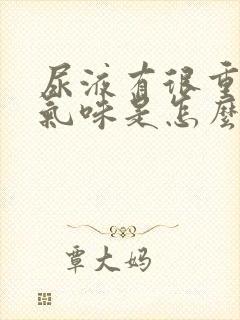 尿液有很重
氣味是怎麼
覃大妈